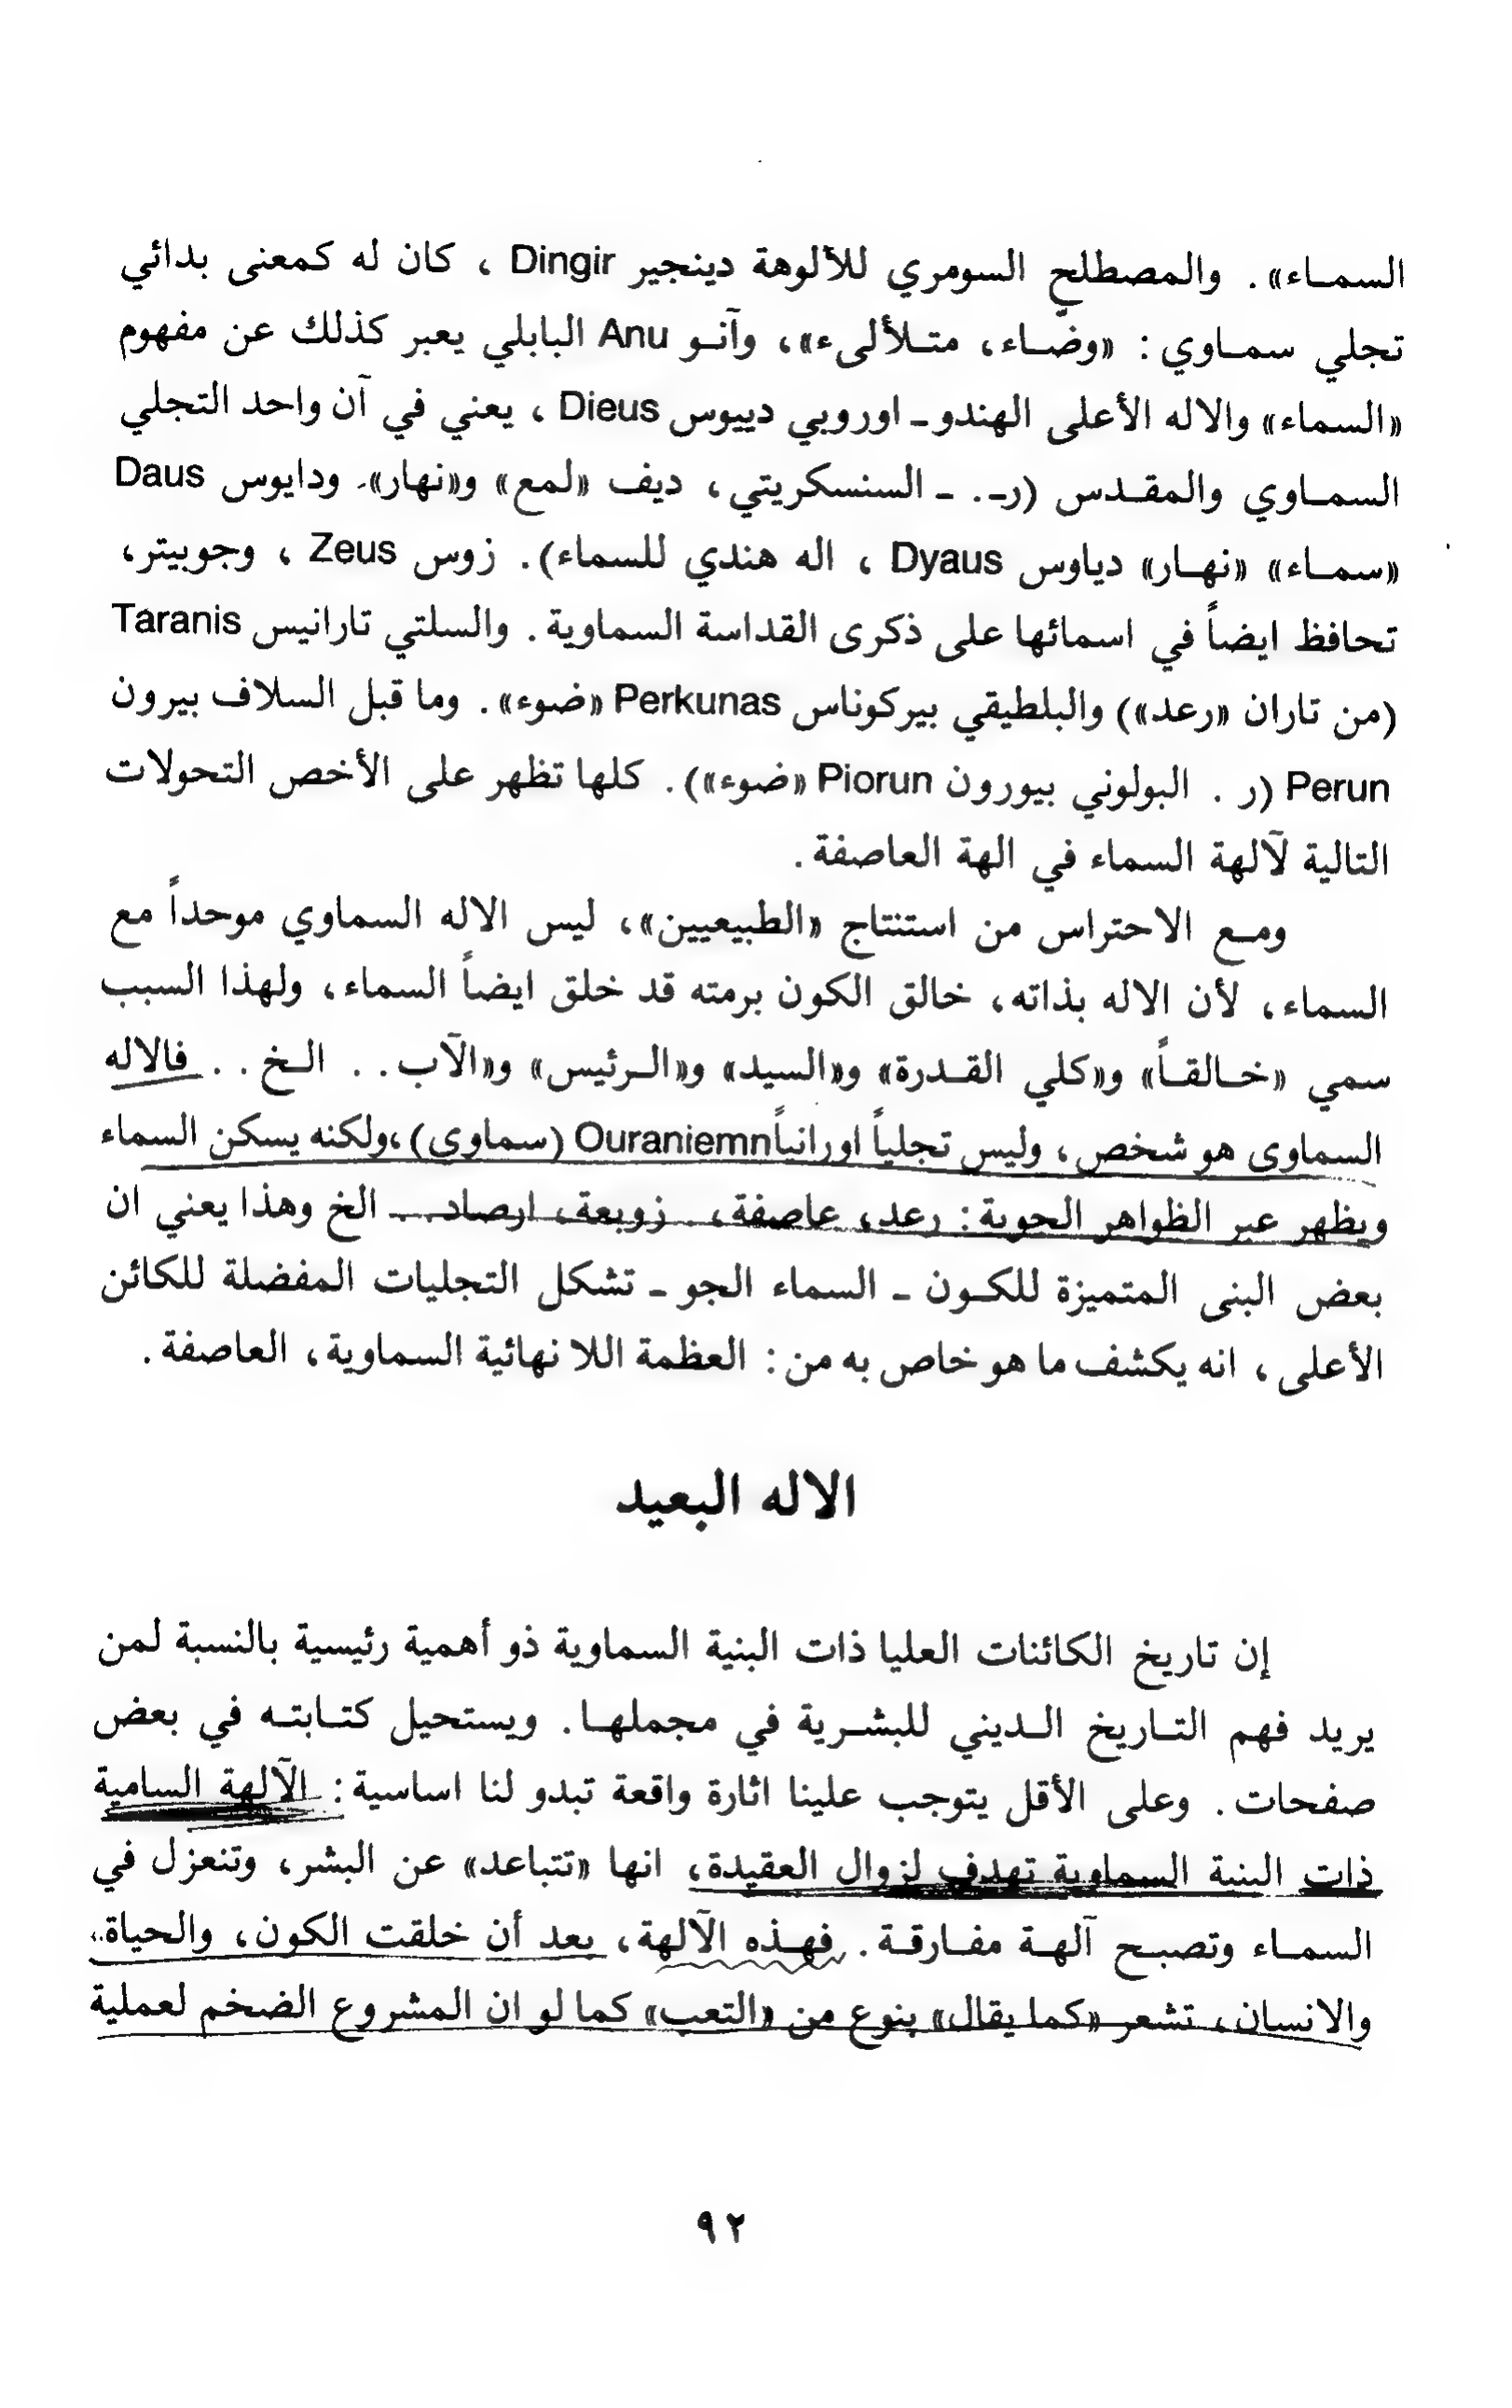 السماء» . والمصطلح السومري للألوهة دينجير Dingir ، كان له كمعنى بدائي
تجلي سماوي : «وضّاء، متلألىء»، وآنو Anu البابلي يعبر كذلك عن مفهوم
«السماء» والاله الأعلى الهندو - اوروبي دييوس Dieus ، يعني في آن واحد التجلي
السماوي والمقدس (ر-. - السنسكريتي، ديف «لمع» و«نهار». ودايوس Daus
«سماء» «نهار» دياوس Dyaus ، اله هندي للسماء). زوس Zeus ، وجوبيتر،
تحافظ ايضاً في اسمائها على ذكرى القداسة السماوية. والسلتي تارانيس Taranis
(من تاران «رعد») والبلطيقي بيركوناس Perkunas «ضوء». وما قبل السلاف بيرون
Perun (ر . البولوني بيورون Piorun «ضوء»). كلها تظهر على الأخص التحولات
التالية لآلهة السماء في الهة العاصفة.
ومع الاحتراس من استنتاج «الطبيعيين»، ليس الاله السماوي موحداً مع
السماء، لأن الاله بذاته، خالق الكون برمته قد خلق ايضاً السماء، ولهذا السبب
سمي «خالقاً» و«كلي القدرة» و«السيد» و«الرئيس» و«الآب. . الخ . . فالاله
السماوي هو شخص، وليس تجلياً اورانياً Ouraniemn (سماوي)،ولكنه يسكن السماء
ويظهر عبر الظواهر الجوية : رعد، عاصفة، زوبعة، ارصاد. . . الخ وهذا يعني ان
بعض البنى المتميزة للكون - السماء الجو - تشكل التجليات المفضلة للكائن
الأعلى، انه يكشف ما هو خاص به من : العظمة اللا نهائية السماوية، العاصفة.
الاله البعيد
إن تاريخ الكائنات العليا ذات البنية السماوية ذو أهمية رئيسية بالنسبة لمن
يريد فهم التاريخ الديني للبشرية في مجملها. ويستحيل كتابته في بعض
صفحات. وعلى الأقل يتوجب علينا اثارة واقعة تبدو لنا اساسية : الآلهة السامية
ذات البنية السماوية تهدف لزوال العقيدة، انها «تتباعد» عن البشر، وتنعزل في
السماء وتصبح آلهة مفارقة. فهذه الآلهة، بعد أن خلقت الكون، والحياة،
والانسان، تشعر «كما يقال» بنوع من «التعب» كما لو ان المشروع الضخم لعملية
٩٢